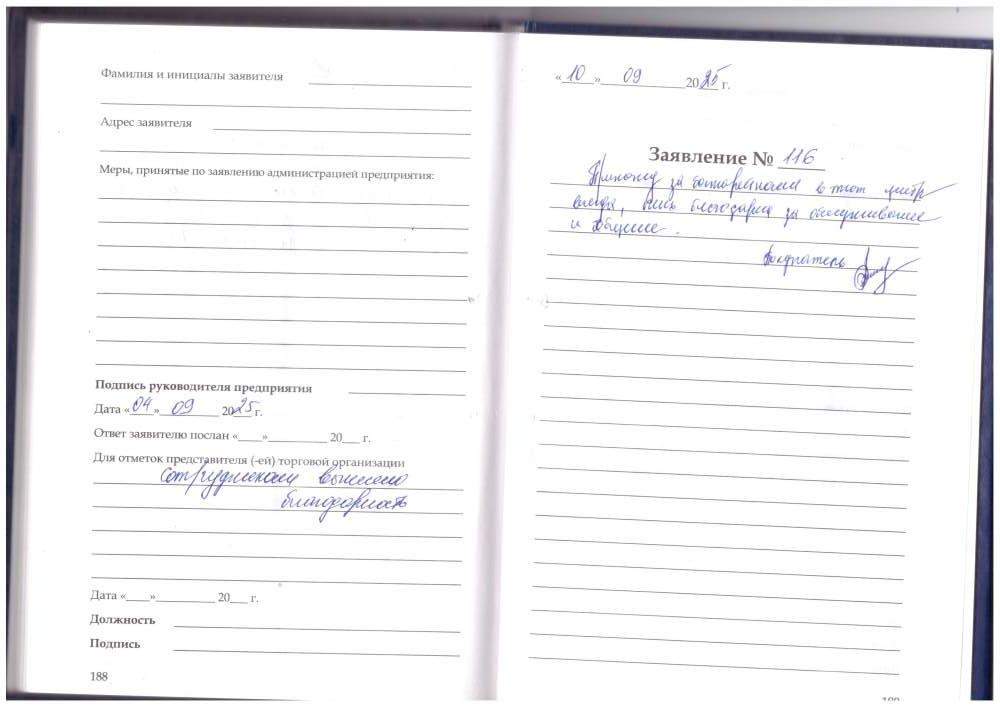 Фамилия и инициалы заявителя
Адрес заявителя
Меры, принятые по заявлению администрацией предприятия:
Подпись руководителя предприятия
Дата «04» 09 2025 г.
Ответ заявителю послан «____»__________ 20___ г.
Для отметок представителя (-ей) торговой организации
Сотрудникам вынесено
благодарность
Дата «____»__________ 20___ г.
Должность
Подпись
188
«10» 09 2025 г.
Заявление № 116
за в этот центр
благодарна за обслуживание
и общение.
Покупатель